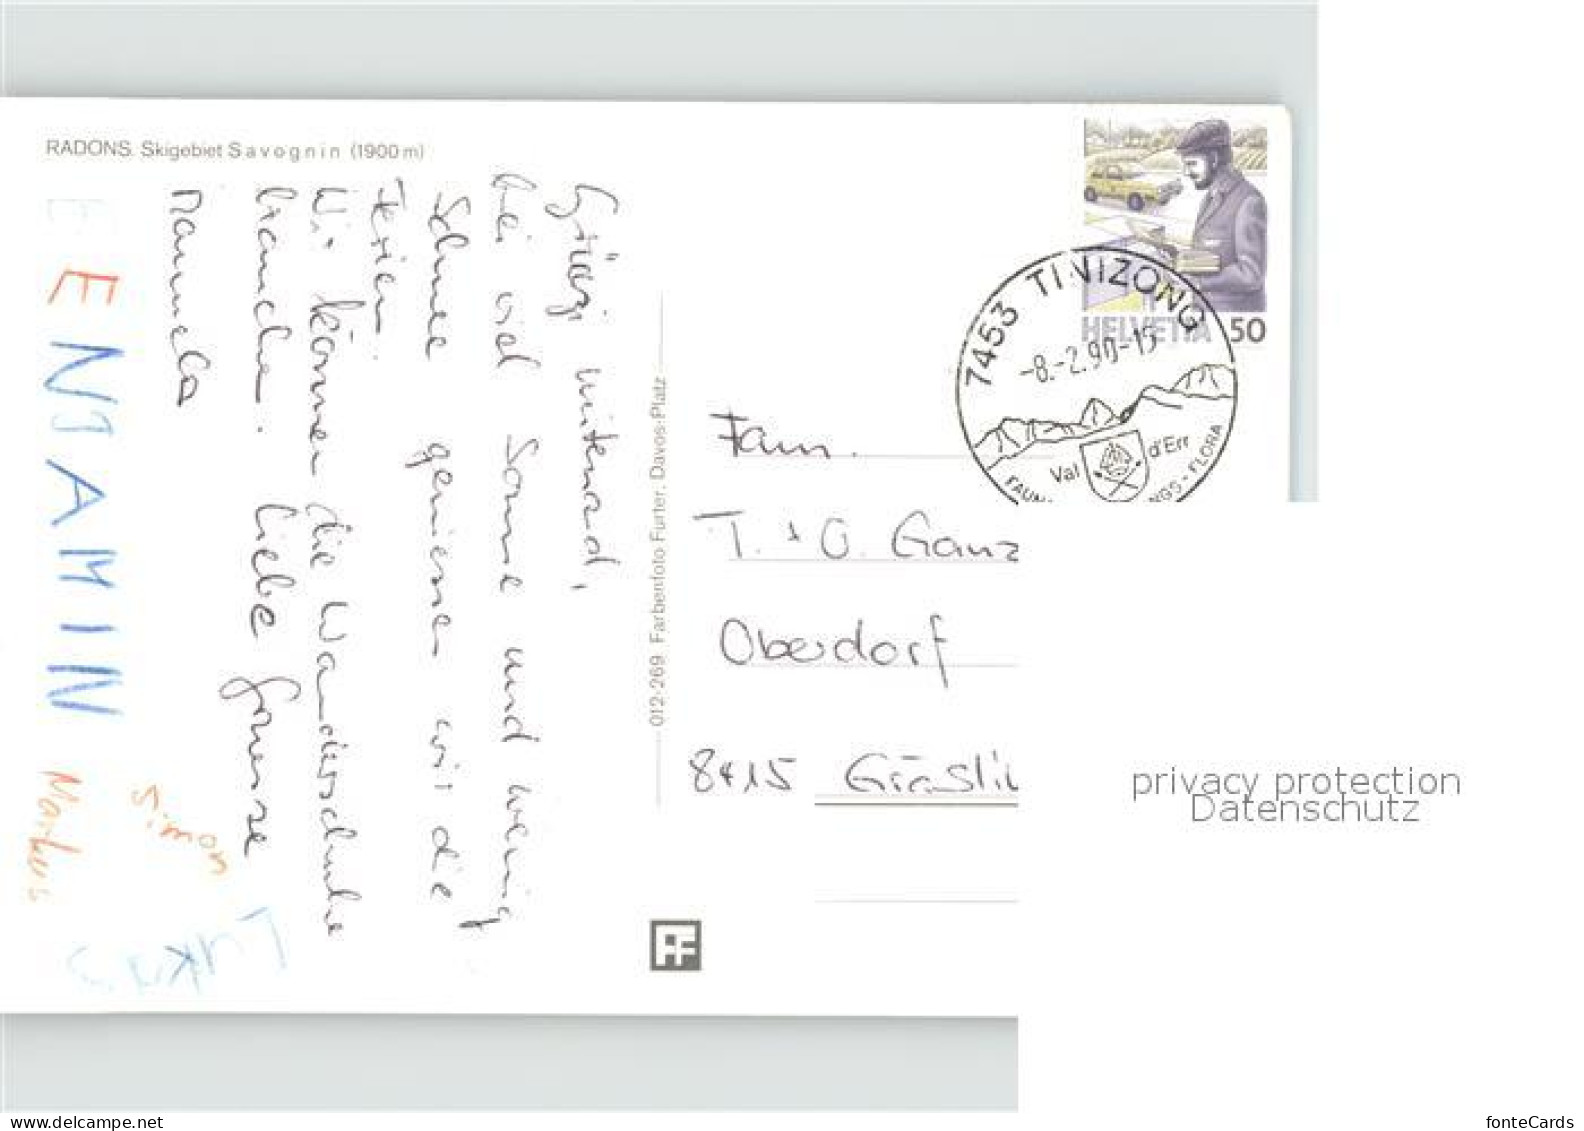 RADONS. Skigebiet Savognin (1900 m)
Grüezi mitenand,
bei viel Sonne und wenig
Schnee geniessen wir die
Ferien.
Wir können die Wanderschuhe
brauchen. Liebe Grüsse
Manuela
ENJAMIN
Markus
Simon
Lukas
012-269 Farbenfoto Furter, Davos-Platz
FF
HELVETIA 50
7453 TINIZONG
-8.-2.90-15
Val d'Err
FLORA
Fam.
T. + O. Ganz
Oberdorf
8415
privacy protection
Datenschutz
www.delcampe.net
fonteCards